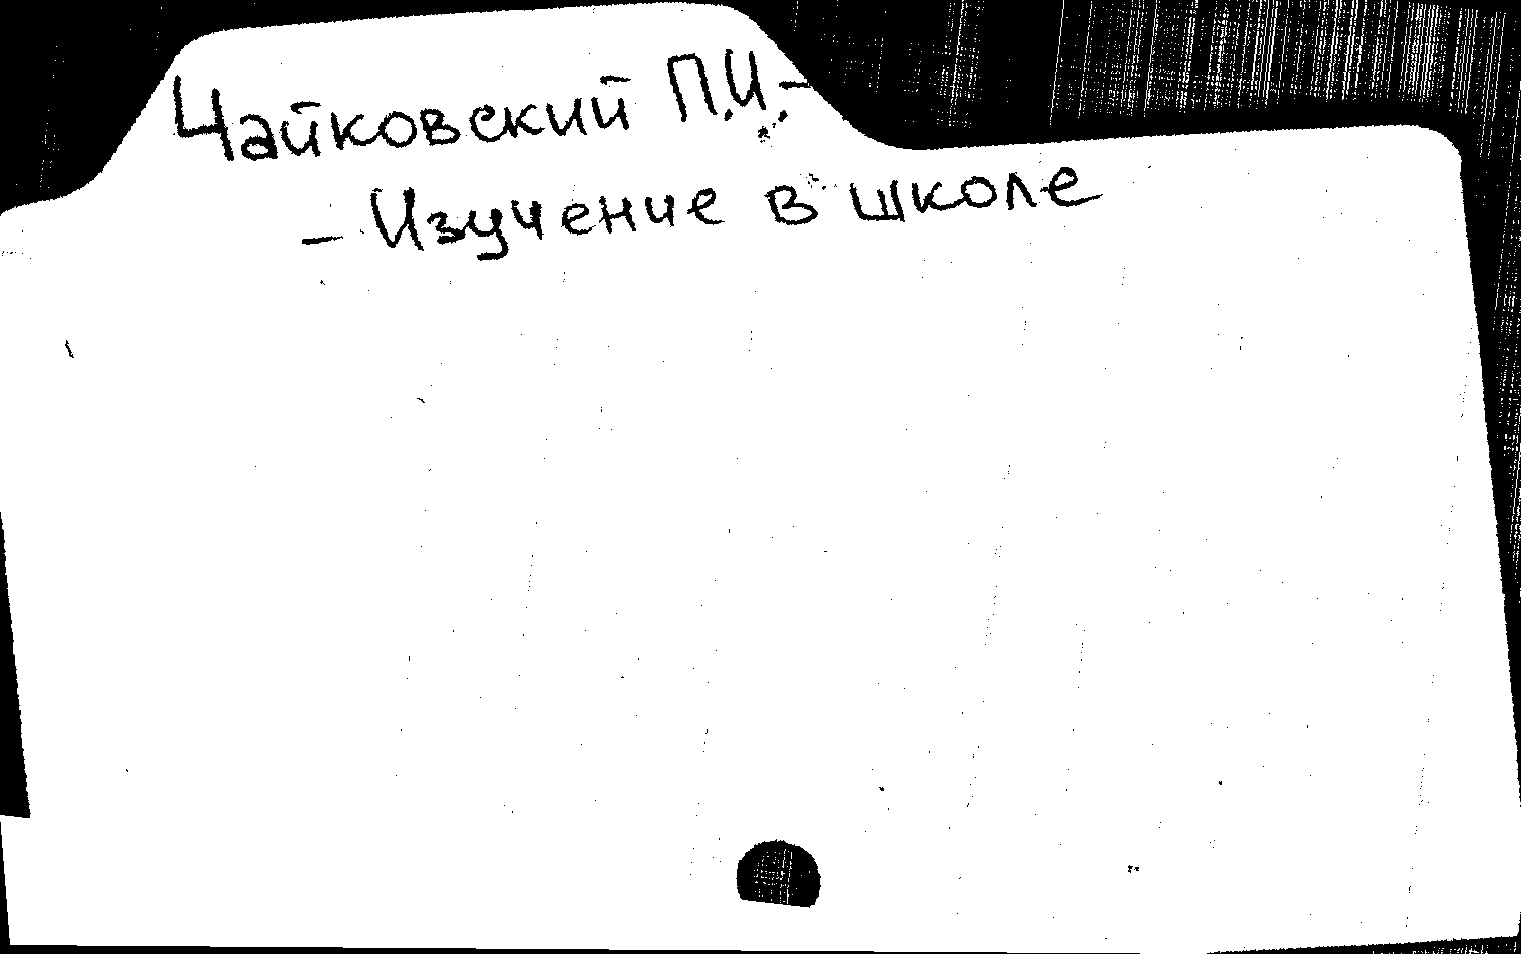 Чайковский П.И.-
- Изучение в школе